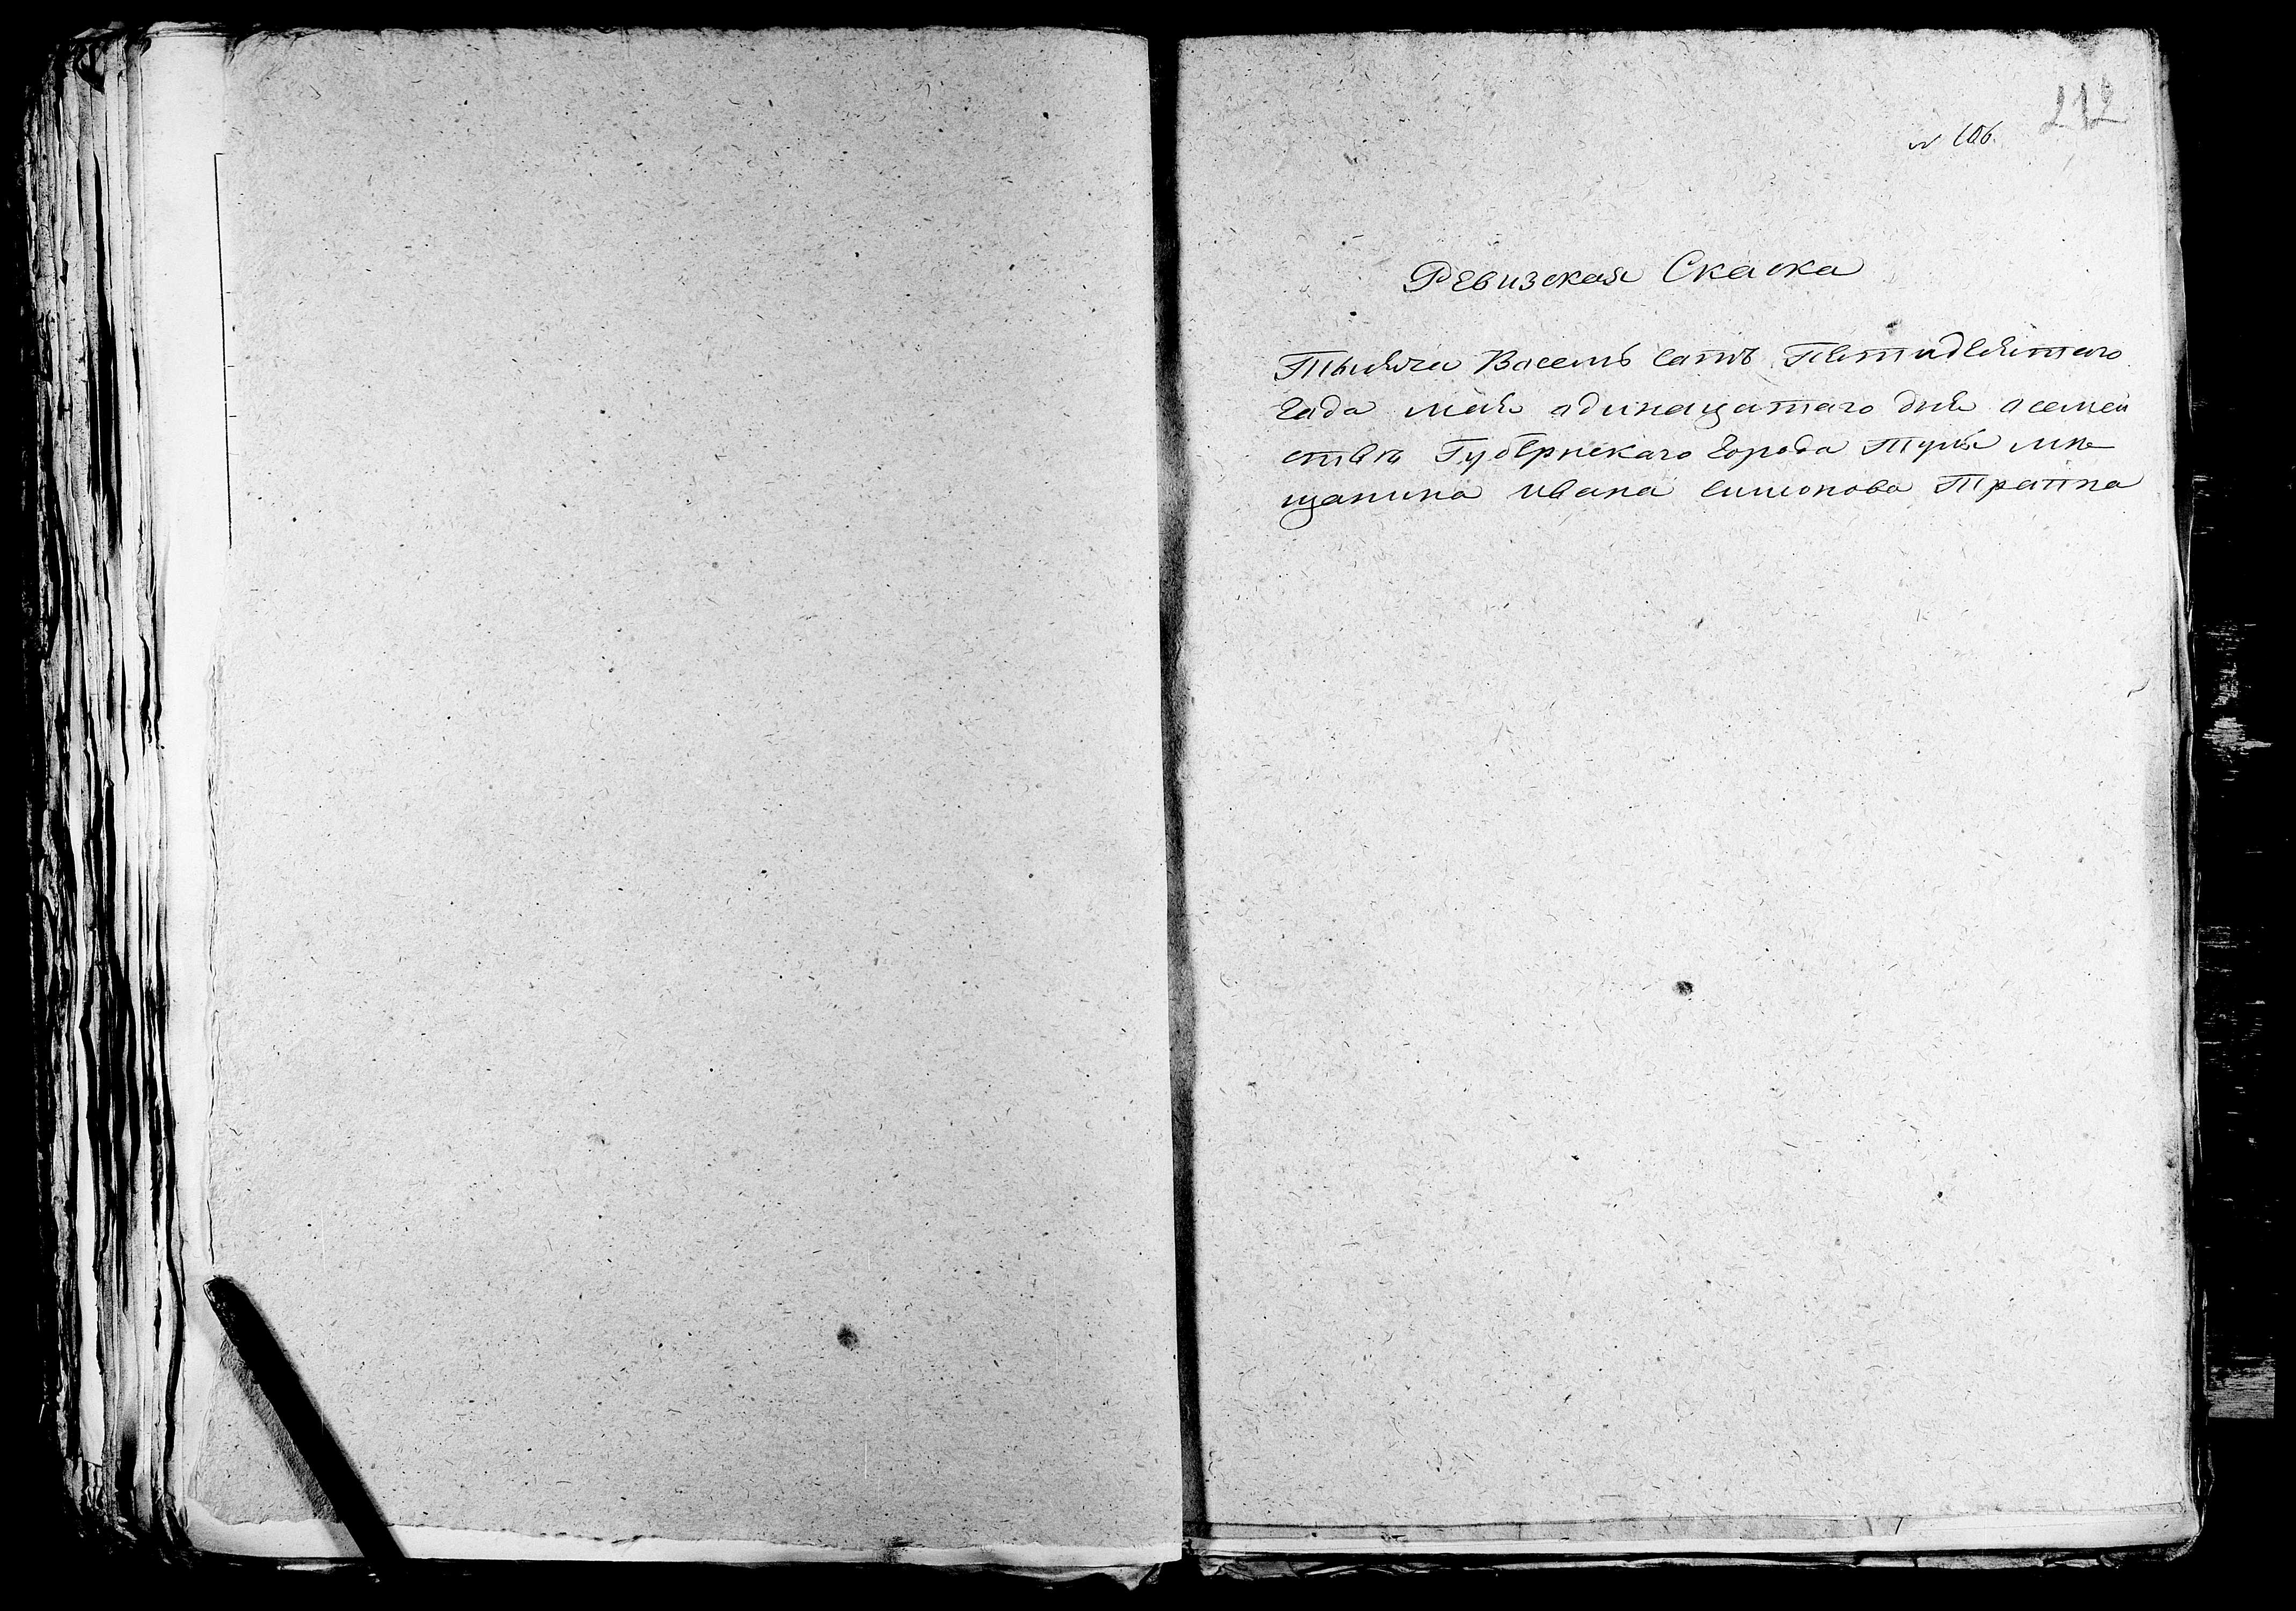 212
№ 106.
Ревизская Скаска
Тысяча Восемь сатъ Петидесятаго
Года мая одинацатаго дня осемей
стве Губернскаго Города Тулы мѣ
щанина ивана симонова Трапна